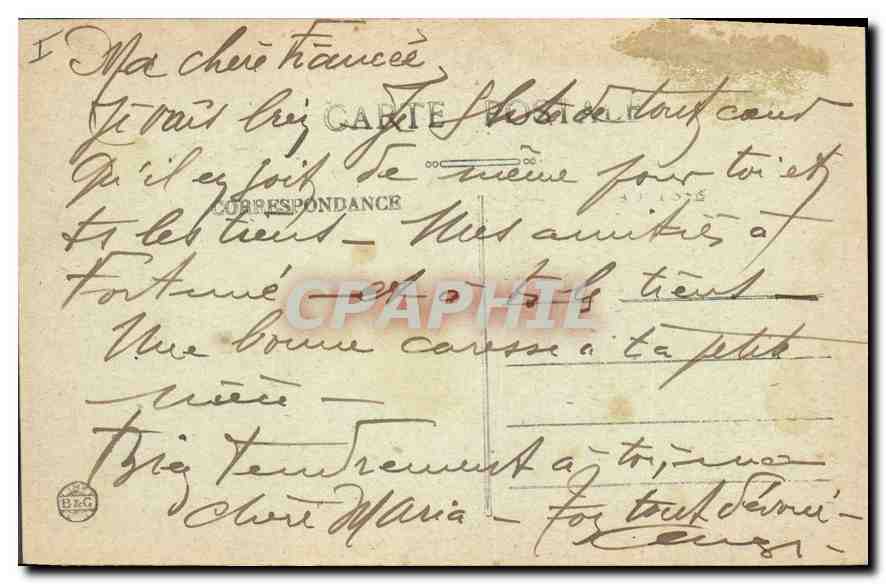 I
Ma chère Fiancée,
Je vais bien de tout cœur
CARTE POSTALE
Qu'il en soit de même pour toi et
CORRESPONDANCE
ts les tiens - Mes amitiés à
Fortuné - et à ts les tiens -
CPAPHIL
Une bonne caresse à ta petite
nièce -
Bien tendrement à toi, ma
B&G
chère Maria - Ton tout dévoué -